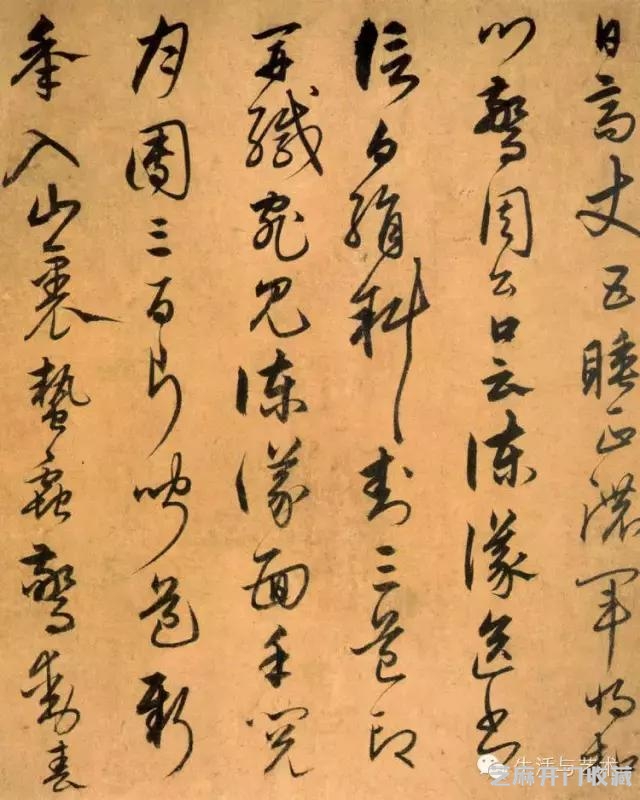 日高丈五睡正濃軍將
門驚周公口云諫議送書
信白絹斜封三道印
開緘宛見諫議面手閱
月團三百片聞道新
年入山裏蟄蟲驚動春
生活与艺术
芝麻开门收藏